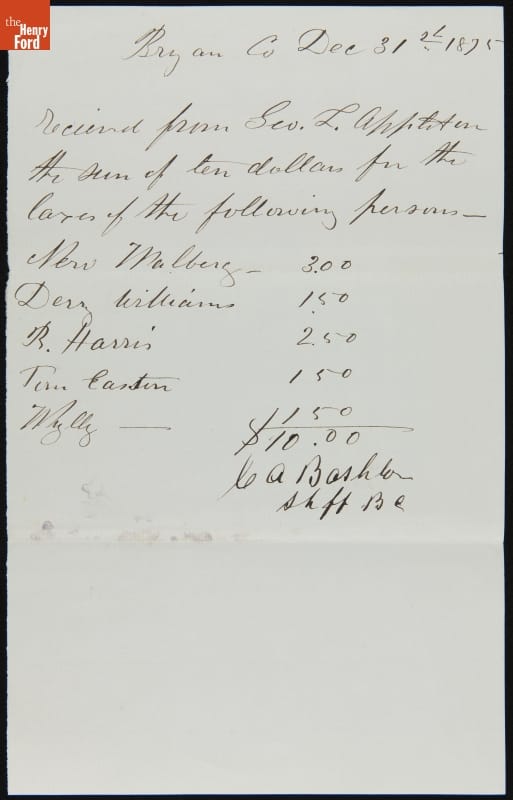 the
Henry
Ford
Bryan Co Dec 31st 1875
Recieved from Geo. L. Appleton
the sum of ten dollars for the
taxes of the following persons—
New Malberg — 3.00
Derry Williams 1.50
R. Harris 2.50
Tim Easton 1 50
Wylly — 1 50
$10.00
C A Bashlor
Shff B C